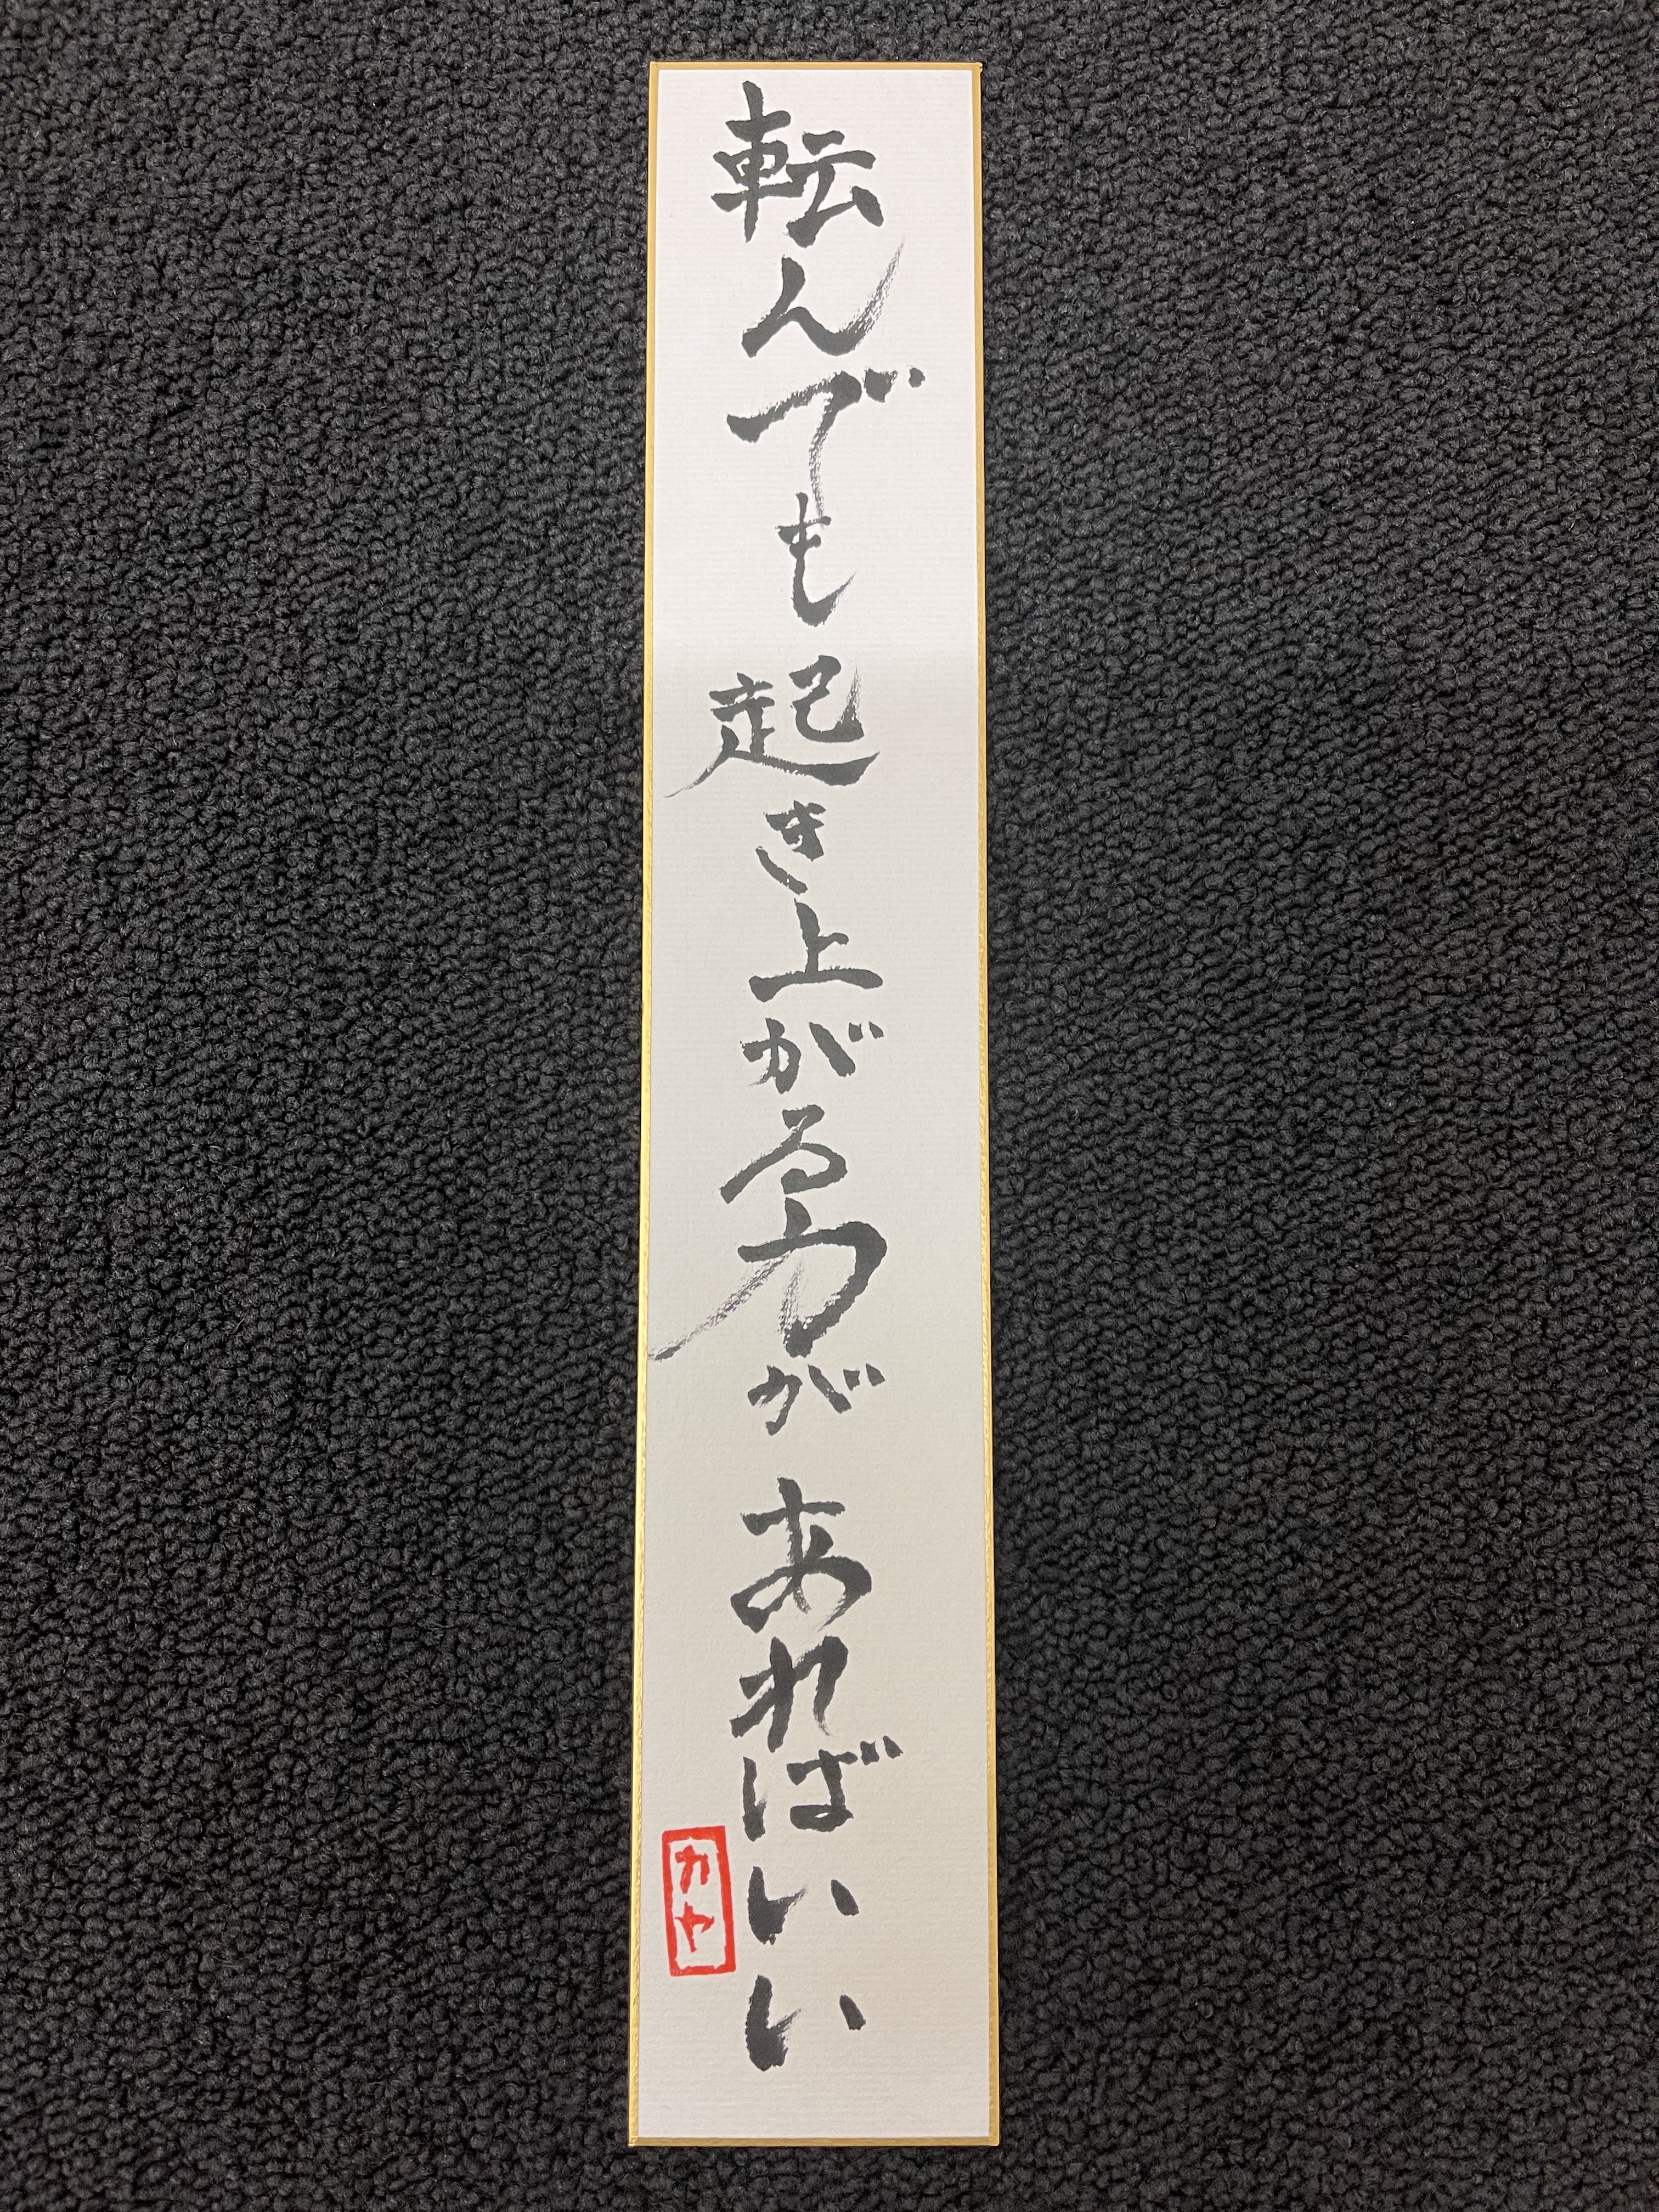 転んでも起き上がる力があればいい
カヤ